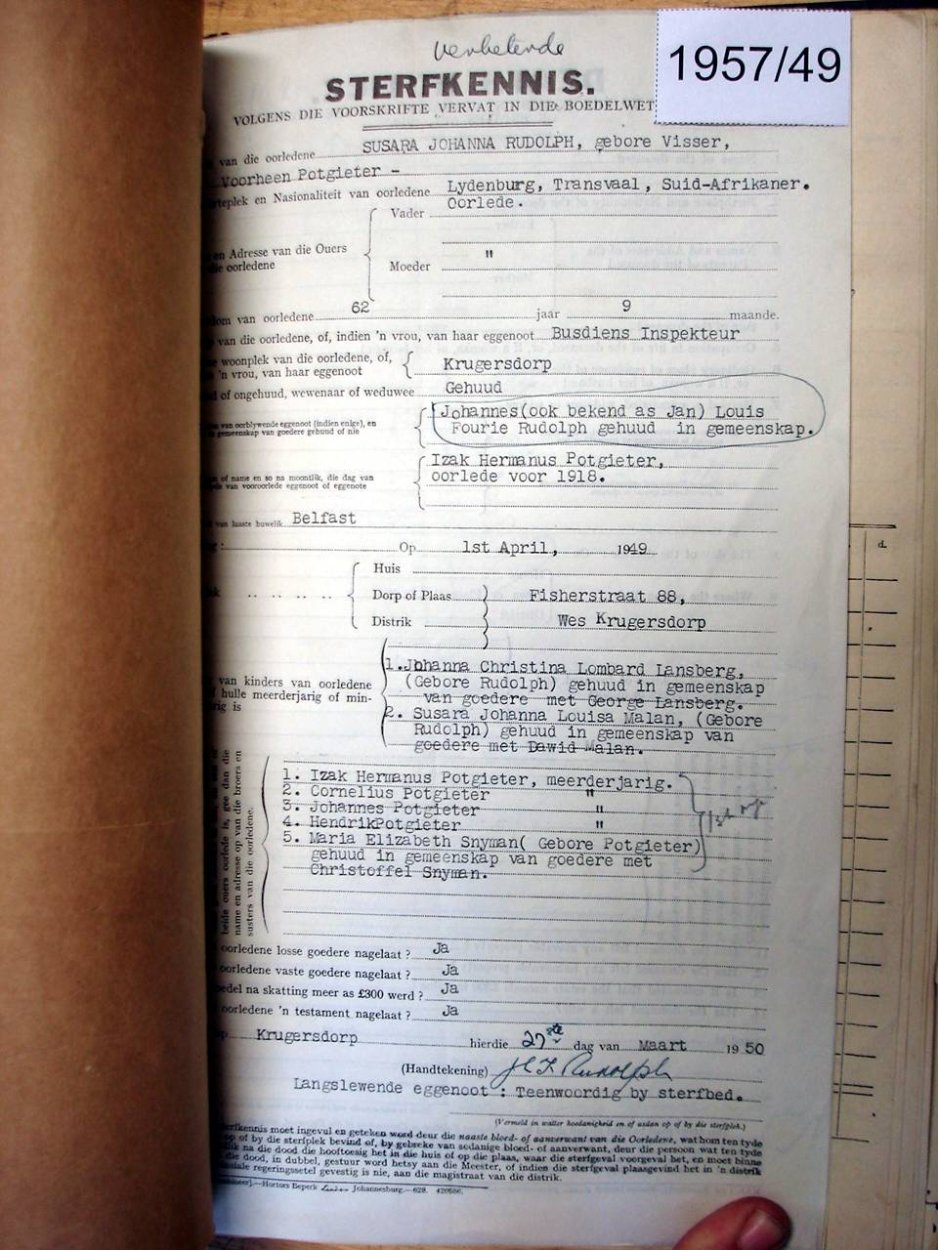 verbeterde
1957/49
STERFKENNIS.
VOLGENS DIE VOORSKRIFTE VERVAT IN DIE BOEDELWET
van die oorledene SUSARA JOHANNA RUDOLPH, gebore Visser,
Voorheen Potgieter -
rteplek en Nasionaliteit van oorledene Lydenburg, Transvaal, Suid-Afrikaner.
Vader Oorlede.
en Adresse van die Ouers
die oorledene
Moeder "
dom van oorledene 62 jaar 9 maande.
van die oorledene, of, indien 'n vrou, van haar eggenoot Busdiens Inspekteur
woonplek van die oorledene, of,
'n vrou, van haar eggenoot Krugersdorp
d of ongehuud, wewenaar of weduwee Gehuud
van oorblywende eggenoot (indien enige), en
gemeenskap van goedere gehuud of nie
Johannes(ook bekend as Jan) Louis
Fourie Rudolph gehuud in gemeenskap.
of name en so na moontlik, die dag van
van vooroorlede eggenoot of eggenote
Izak Hermanus Potgieter,
oorlede voor 1918.
van laaste huwelik Belfast
Op 1st April, 1949
Huis
Dorp of Plaas Fisherstraat 88,
Distrik Wes Krugersdorp
van kinders van oorledene
hulle meerderjarig of min-
rig is
1. Johanna Christina Lombard Lansberg,
(Gebore Rudolph) gehuud in gemeenskap
van goedere met George Lansberg.
2. Susara Johanna Louisa Malan, (Gebore
Rudolph) gehuud in gemeenskap van
goedere met Dawid Malan.
beide ouers oorlede is, gee dan die
name en adresse op van die broers en
susters van die oorledene.
1. Izak Hermanus Potgieter, meerderjarig.
2. Cornelius Potgieter "
3. Johannes Potgieter "
4. HendrikPotgieter "
5. Maria Elizabeth Snyman( Gebore Potgieter)
gehuud in gemeenskap van goedere met
Christoffel Snyman.
oorledene losse goedere nagelaat ? Ja
oorledene vaste goedere nagelaat ? Ja
edel na skatting meer as £300 werd ? Ja
oorledene 'n testament nagelaat ? Ja
Krugersdorp hierdie 27ste dag van Maart 1950
(Handtekening) JLF Rudolph
Langslewende eggenoot : Teenwoordig by sterfbed.
(Vermeld in watter hoedanigheid en of aldan op of by die sterfplek.)
terfkennis moet ingevul en geteken word deur die naaste bloed- of aanverwant van die Oorledene, wat hom ten tyde
op of by die sterfplek bevind of, by gebreke van sodanige bloed- of aanverwant, deur die persoon wat ten tyde
lik na die dood die hooftoesig het in die huis of op die plaas, waar die sterfgeval voorgeval het, en moet binne
die dood, in dubbel, gestuur word hetsy aan die Meester, of indien die sterfgeval plaasgevind het in 'n distrik
siale regeringssetel gevestig is nie, aan die magistraat van die distrik.
Hortors Beperk Johannesburg.—628.
d.